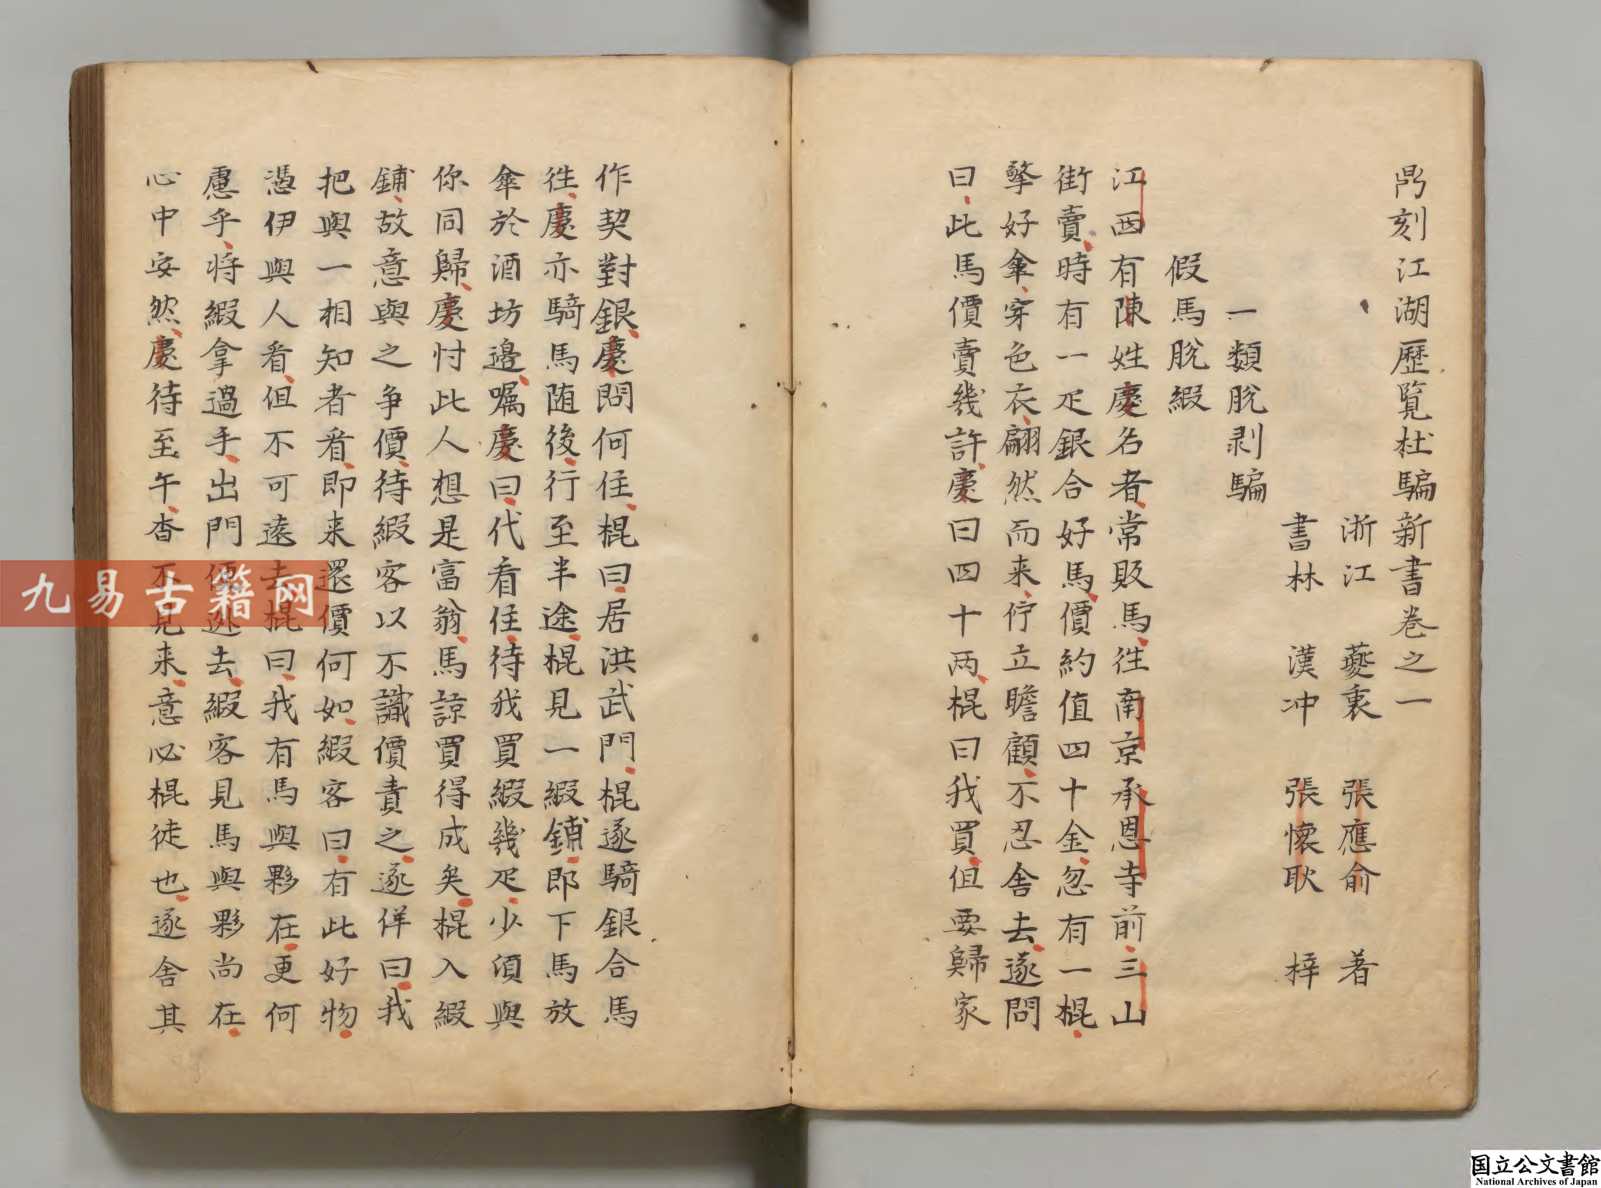 鼎刻江湖歷覧杜騙新書卷之一
浙江 夔衷 張應俞 著
書林 漢冲 張懷耿 梓
一類脫剥騙
假馬脫緞
江西有陳姓慶名者常販馬往南京承恩寺前三山
街賣時有一疋銀合好馬價約值四十金忽有一棍
擎好傘穿色衣翩然而来佇立瞻顧不忍舍去遂問
曰此馬價賣幾許慶曰四十两棍曰我買但要歸家
作契對銀慶問何住棍曰居洪武門棍遂騎銀合馬
往慶亦騎馬随後行至半途棍見一緞鋪即下馬放
傘於酒坊邊嘱慶曰代看住待我買緞幾疋少須與
你同歸慶忖此人想是富翁馬諒買得成矣棍入緞
鋪故意與之争價待緞客以不識價責之遂佯曰我
把與一相知者看即来還價何如緞客曰有此好物
憑伊與人看但不可遠去棍曰我有馬與夥在更何
慮乎将緞拿過手出門便迯去緞客見馬與夥尚在
心中安然慶待至午杳不見来意必棍徒也遂舍其
九易古籍网
国立公文書館
National Archives of Japan